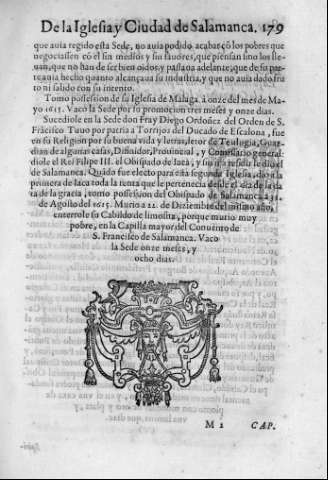 De la Iglesia y Ciudad de Salamanca. 179
que auia regido esta Sede, no auia podido acabar cõ los pobres que
negociassen cõ el sin medios y sin fauores, que piensan sino los lle-
uan, que no han de ser bien oidos, y passaua adelante, que de su par-
te auia hecho quanto alcançaua su industria, y que no auia dado fru
to ni salido con su intento.
Tomo possession de su Iglesia de Malaga à onze del mes de Ma-
yo 1615. Vaco la Sede por su promocion tres meses y onze dias.
Sucediole en la Sede don Fray Diego Ordoñez del Orden de S.
Frãcisco Tuuo por patria a Torrijos del Ducado de Escalona, fue
en su Religion por su buena vida y letras, letor de Teulugia, Guar-
dian de algunas casas, Difinidor, Prouincial, y Comissario general:
diole el Rei Filipe III. el Obispado de Iaca, y sin ir a residir le dio el
de Salamanca. Quãdo fue electo para esta segunda Iglesia, dio a la
primera de Iaca toda la renta que le pertenecia desde el dia de la da
ta de la gracia, tomo possession del Obispado de Salamanca à 31.
de Agosto del 1615. Murio a 22. de Diziembre del mismo año,
enterrole su Cabildo de limosna, porque murio muy
pobre, en la Capilla mayor del Conuento de
S. Francisco de Salamanca. Vaco
la Sede onze meses, y
ocho dias.
M 2 CAP.